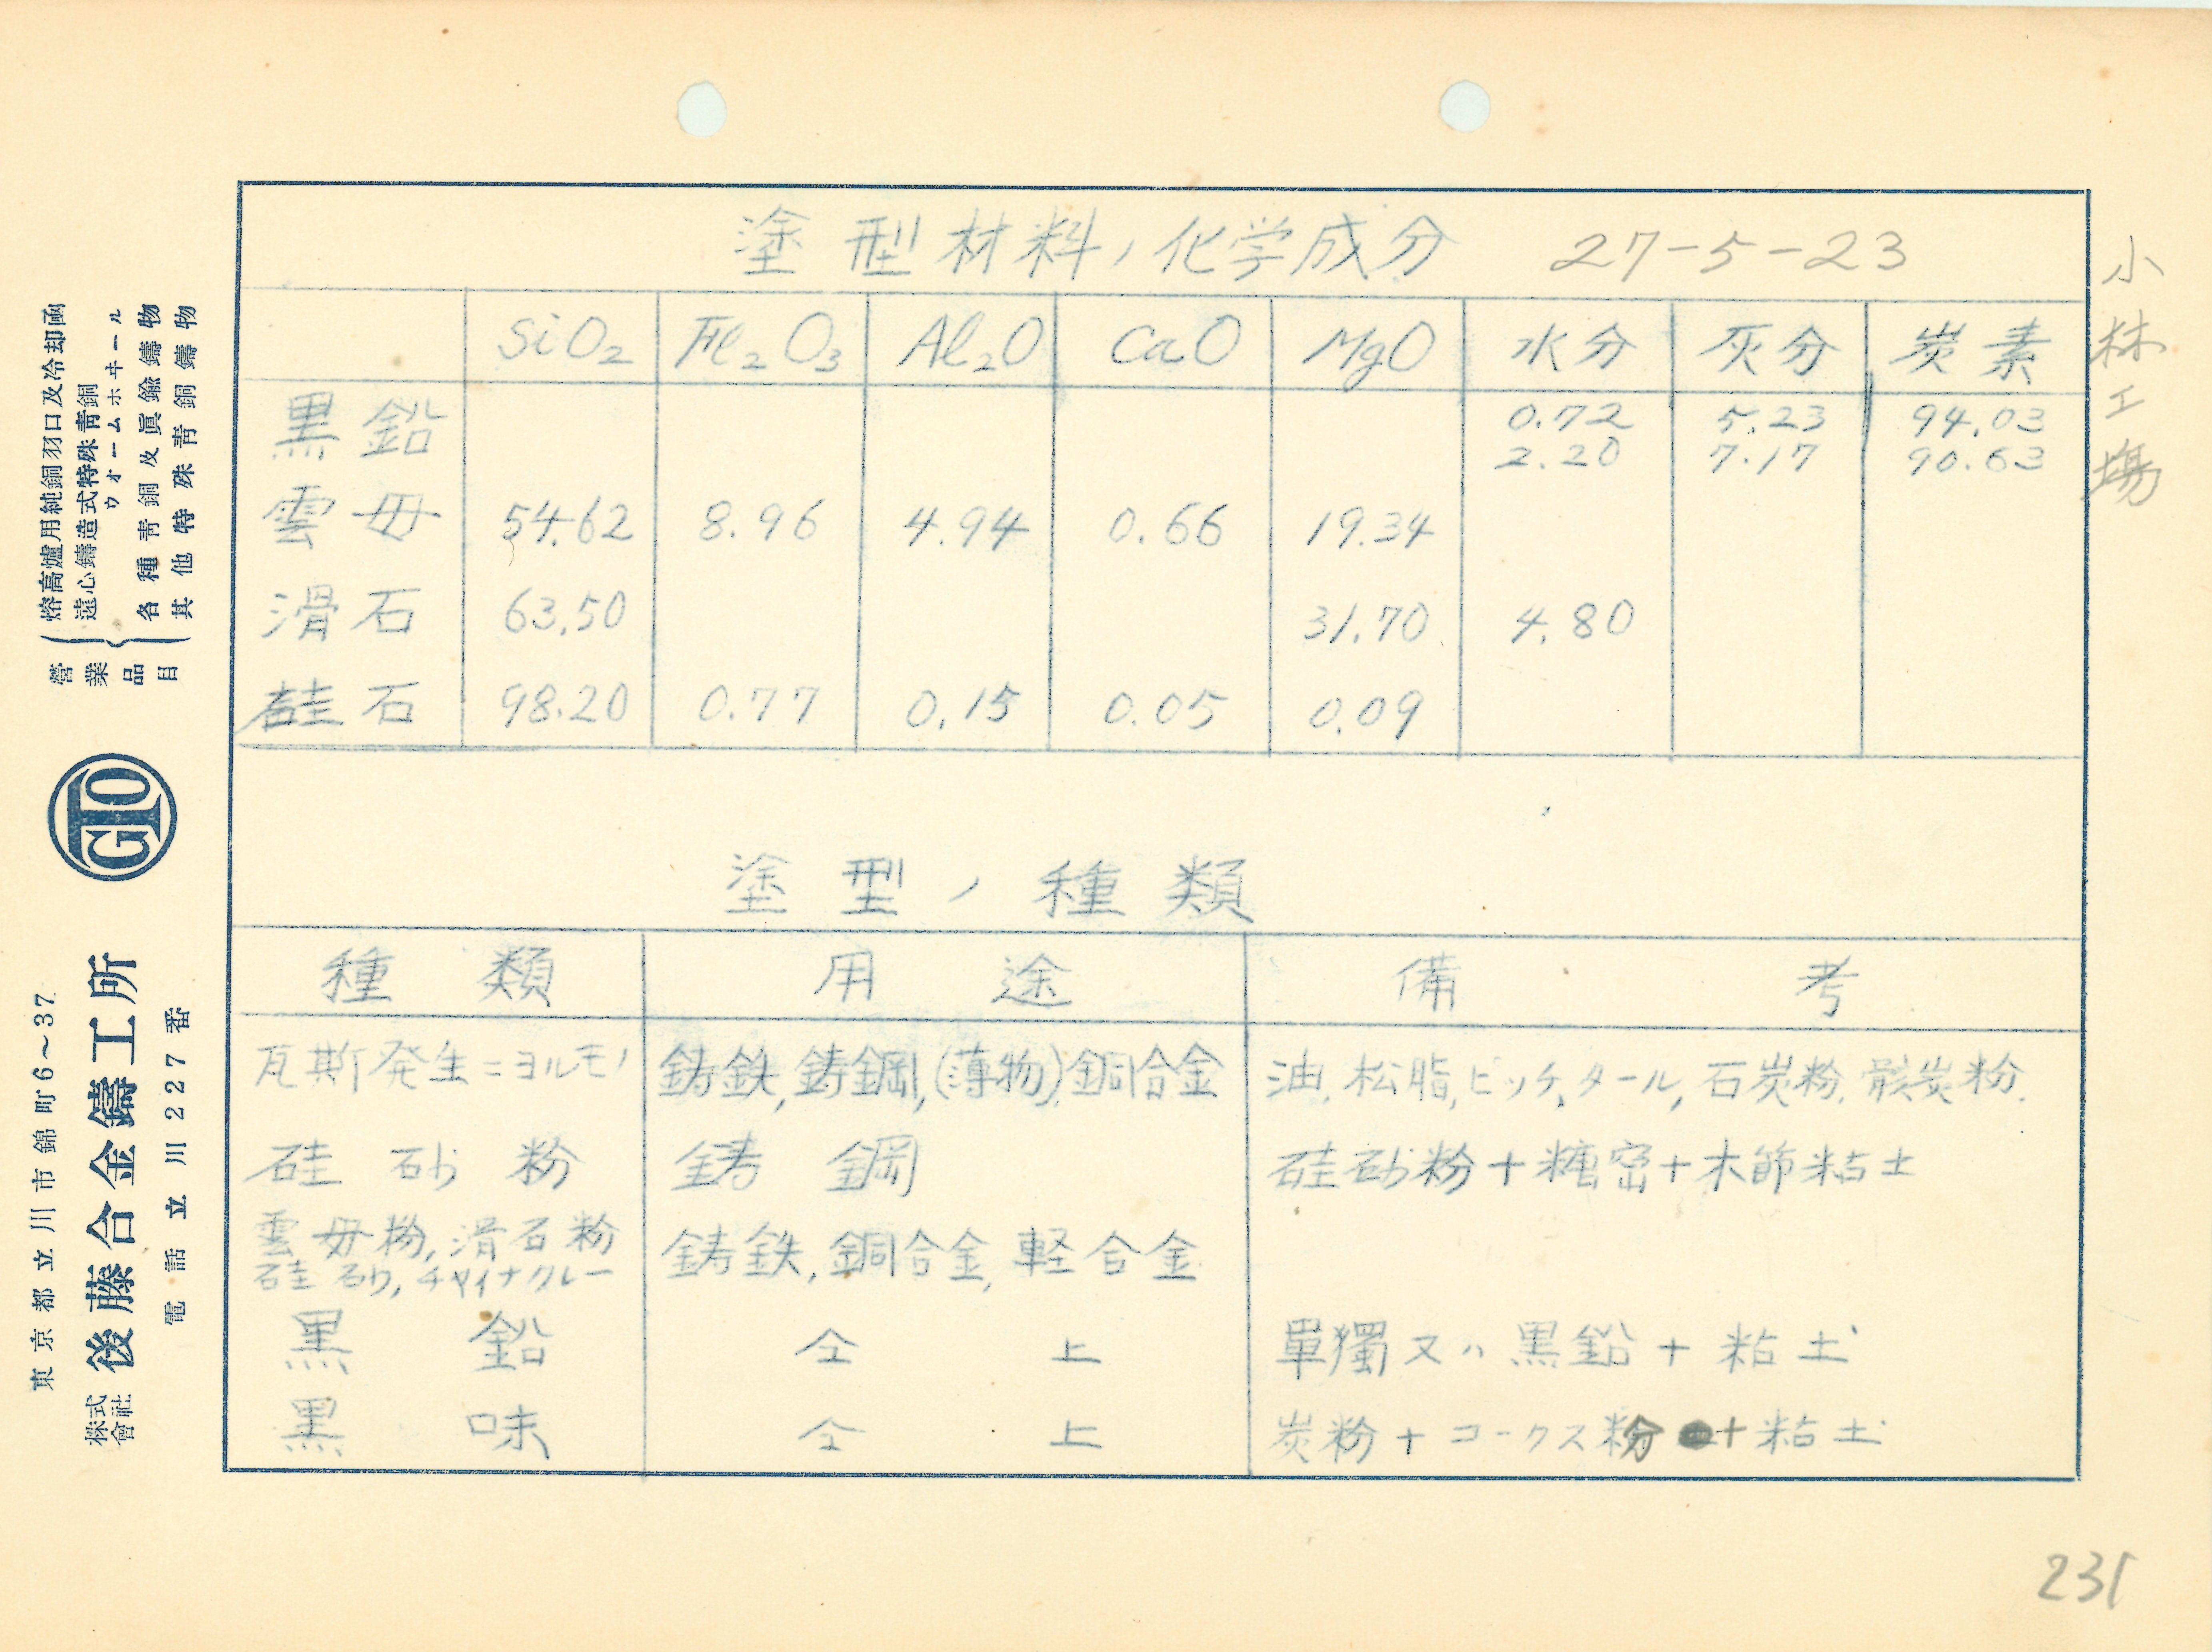 塗型材料ノ化学成分 27-5-23
小林工場
SiO2 Fe2O3 Al2O CaO MgO 水分 灰分 炭素
黒鉛 0.72 5.23 94.03
2.20 7.17 90.63
雲母 54.62 8.96 4.94 0.66 19.34
滑石 63.50 31.70 4.80
硅石 98.20 0.77 0.15 0.05 0.09
塗型ノ種類
種類 用途 備考
瓦斯発生ニヨルモノ 鋳鉄,鋳鋼,(薄物),銅合金 油,松脂,ピッチ,タール,石炭粉,骸炭粉.
硅砂粉 鋳鋼 硅砂粉+糖密+木節粘土
雲母粉,滑石粉 鋳鉄,銅合金,軽合金
硅砂,チャイナクレー
黒鉛 仝上 單獨又ハ黒鉛+粘土
黒味 仝上 炭粉+コークス粉+粘土
231
營業品目
熔高爐用純銅羽口及冷却凾
遠心鑄造式特殊青銅
ウオームホヰール
各種青銅及眞鍮鑄物
其他特殊青銅鑄物
GTO
東京都立川市錦町6～37
株式會社 後藤合金鑄工所
電話 立川227番